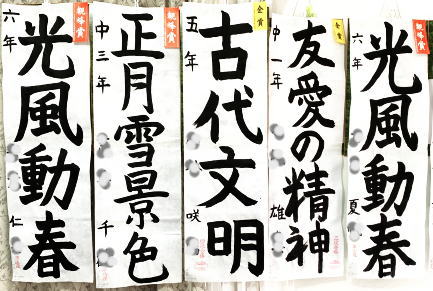 観峰賞
六年
光風動春
仁
観峰賞
中三年
正月雪景色
千
金賞
五年
古代文明
咲
金賞
中一年
友愛の精神
雄
観峰賞
六年
光風動春
夏